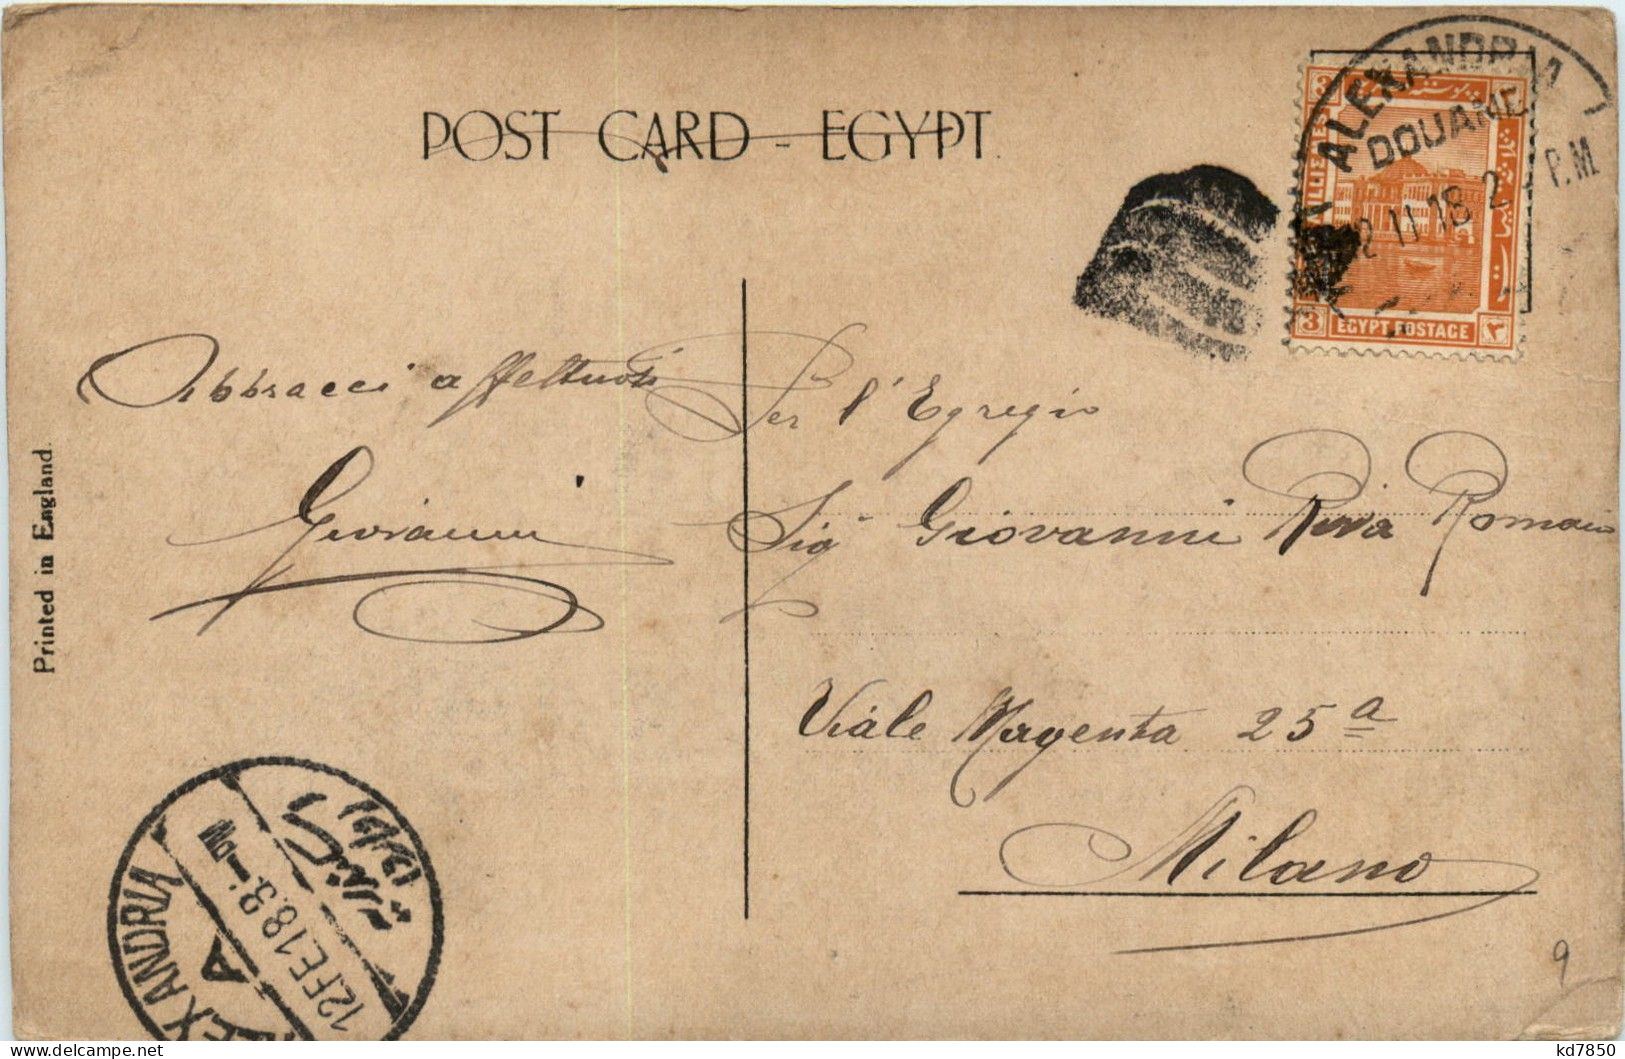 POST CARD - EGYPT.
ALEXANDRIA
DOUANE
12 II 18 2 - P.M.
3
3
EGYPT POSTAGE
٣
Abbracci affettuosi
Giovanni
Per l'Egregio
Sigr Giovanni Riva Romano
Viale Magenta 25a
Milano
Printed in England.
ALEXANDRIA
A
12.FE.18.3-
اسكندرية
9
kd7850